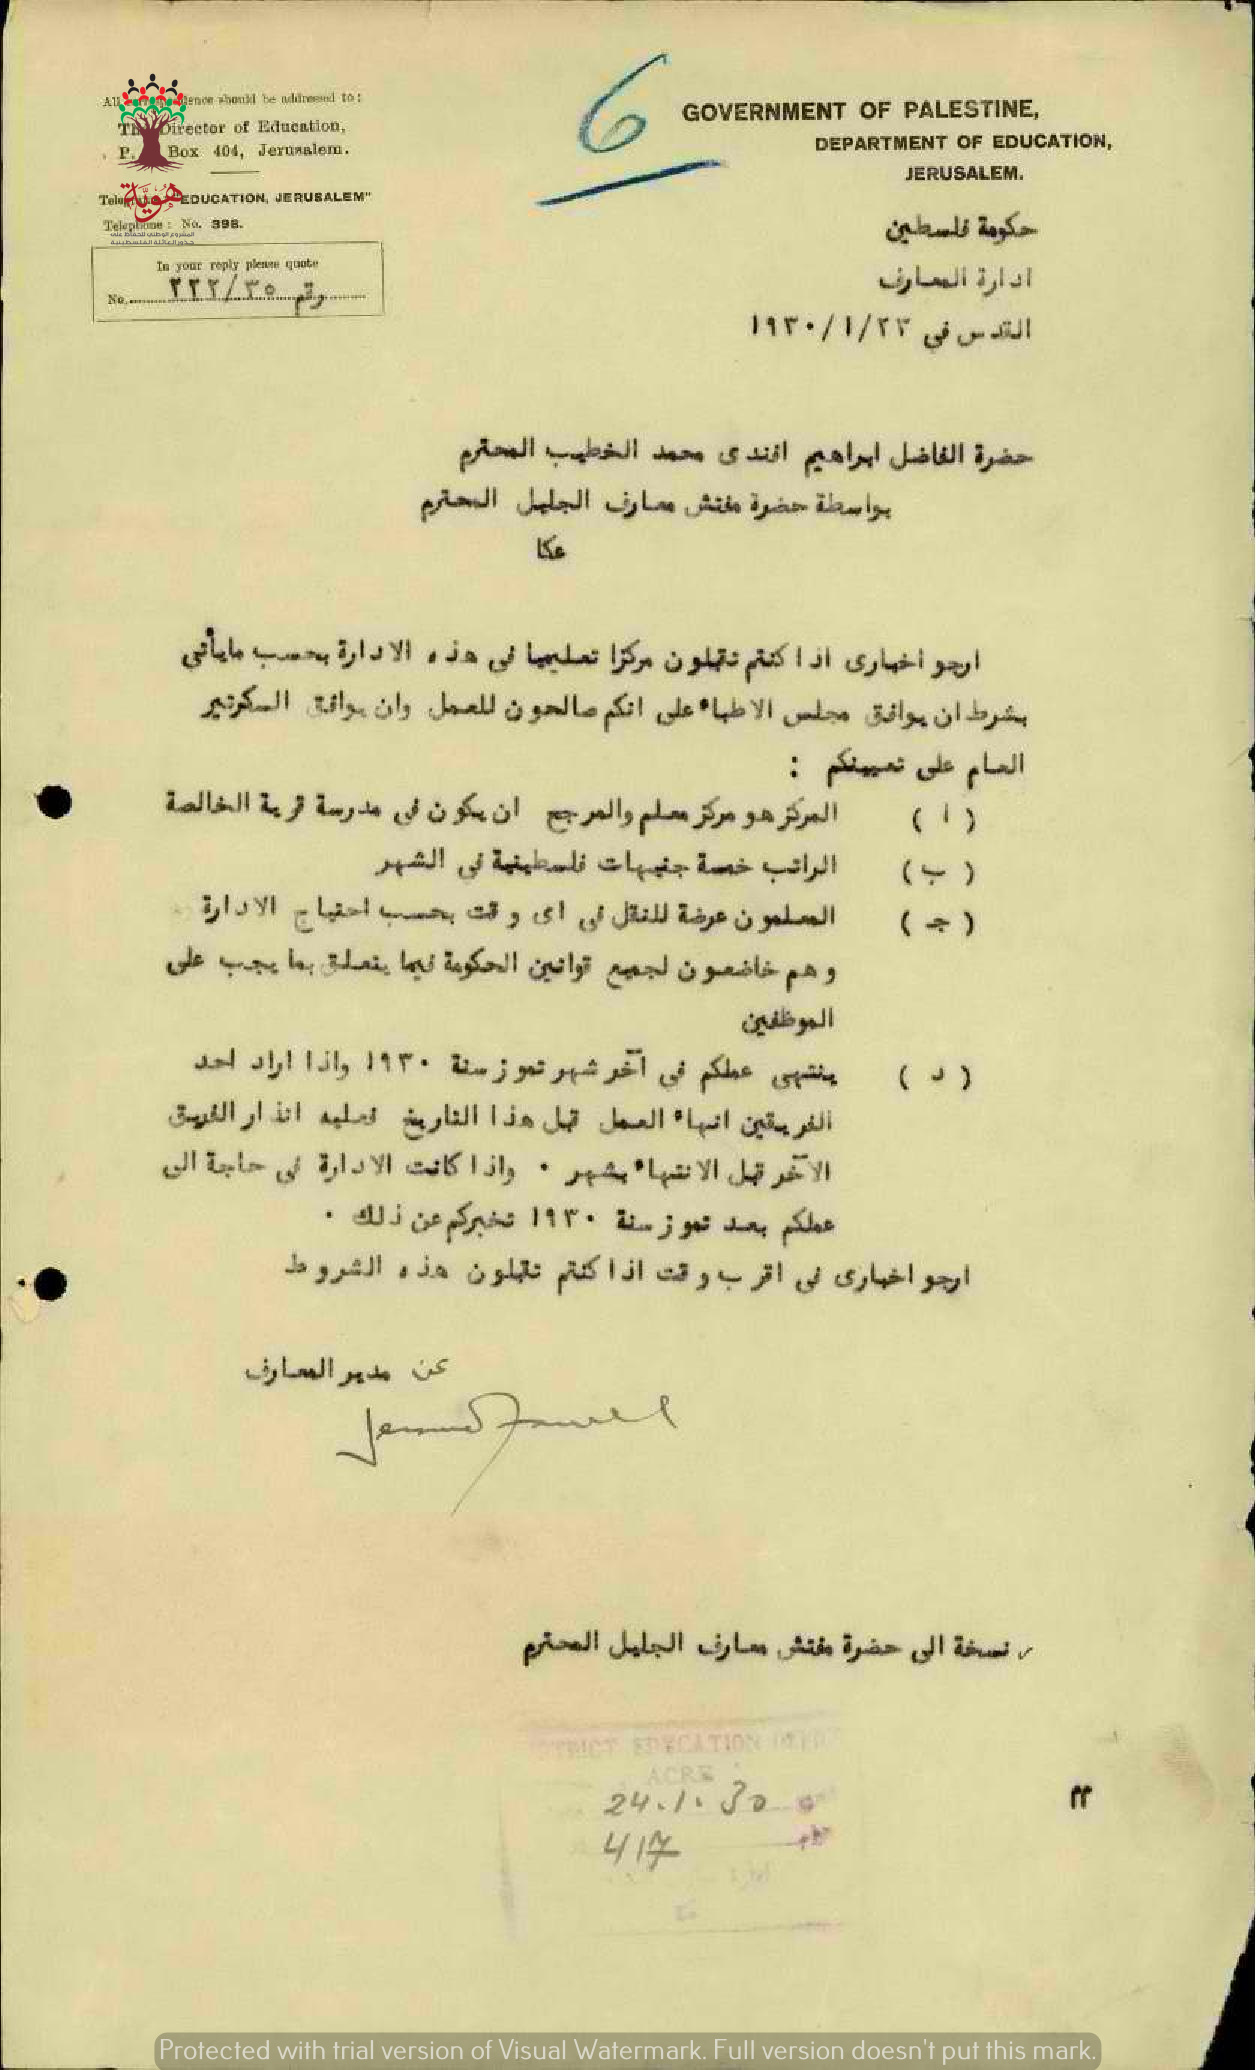 All correspondence should be addressed to:
The Director of Education,
P. Box 404, Jerusalem.
"EDUCATION, JERUSALEM"
Telephone : No. 398.
هوية
المشروع الوطني للحفاظ على
جذور العائلة الفلسطينية
In your reply please quote
No. رقم ٢٢٢/٣٥
6
GOVERNMENT OF PALESTINE,
DEPARTMENT OF EDUCATION,
JERUSALEM.
حكومة فلسطين
ادارة المعارف
القدس في ١٩٣٠/١/٢٣
حضرة الفاضل ابراهيم افندى محمد الخطيب المحترم
بواسطة حضرة مفتش معارف الجليل المحترم
عكا
ارجو اخبارى اذا كنتم تقبلون مركزا تعليميا فى هذه الادارة بحسب مايأتي
بشرط ان يوافق مجلس الاطباء على انكم صالحون للعمل وان يوافق السكرتير
العام على تعيينكم :
( ا ) المركز هو مركز معلم والمرجح ان يكون فى مدرسة قرية الخالصة
( ب ) الراتب خمسة جنيهات فلسطينية فى الشهر
( ج ) المعلمون عرضة للنقل فى اى وقت بحسب احتياج الادارة
وهم خاضعون لجميع قوانين الحكومة فيما يتعلق بما يجب على
الموظفين
( د ) ينتهى عملكم فى آخر شهر تموز سنة ١٩٣٠ واذا اراد احد
الفريقين انهاء العمل قبل هذا التاريخ فعليه انذار الفريق
الآخر قبل الانتهاء بشهر . واذا كانت الادارة فى حاجة الى
عملكم بعد تموز سنة ١٩٣٠ تخبركم عن ذلك .
ارجو اخبارى فى اقرب وقت اذا كنتم تقبلون هذه الشروط
عن مدير المعارف
نسخة الى حضرة مفتش معارف الجليل المحترم
EDUCATION
ACRE
24.1.30
417
Protected with trial version of Visual Watermark. Full version doesn't put this mark.